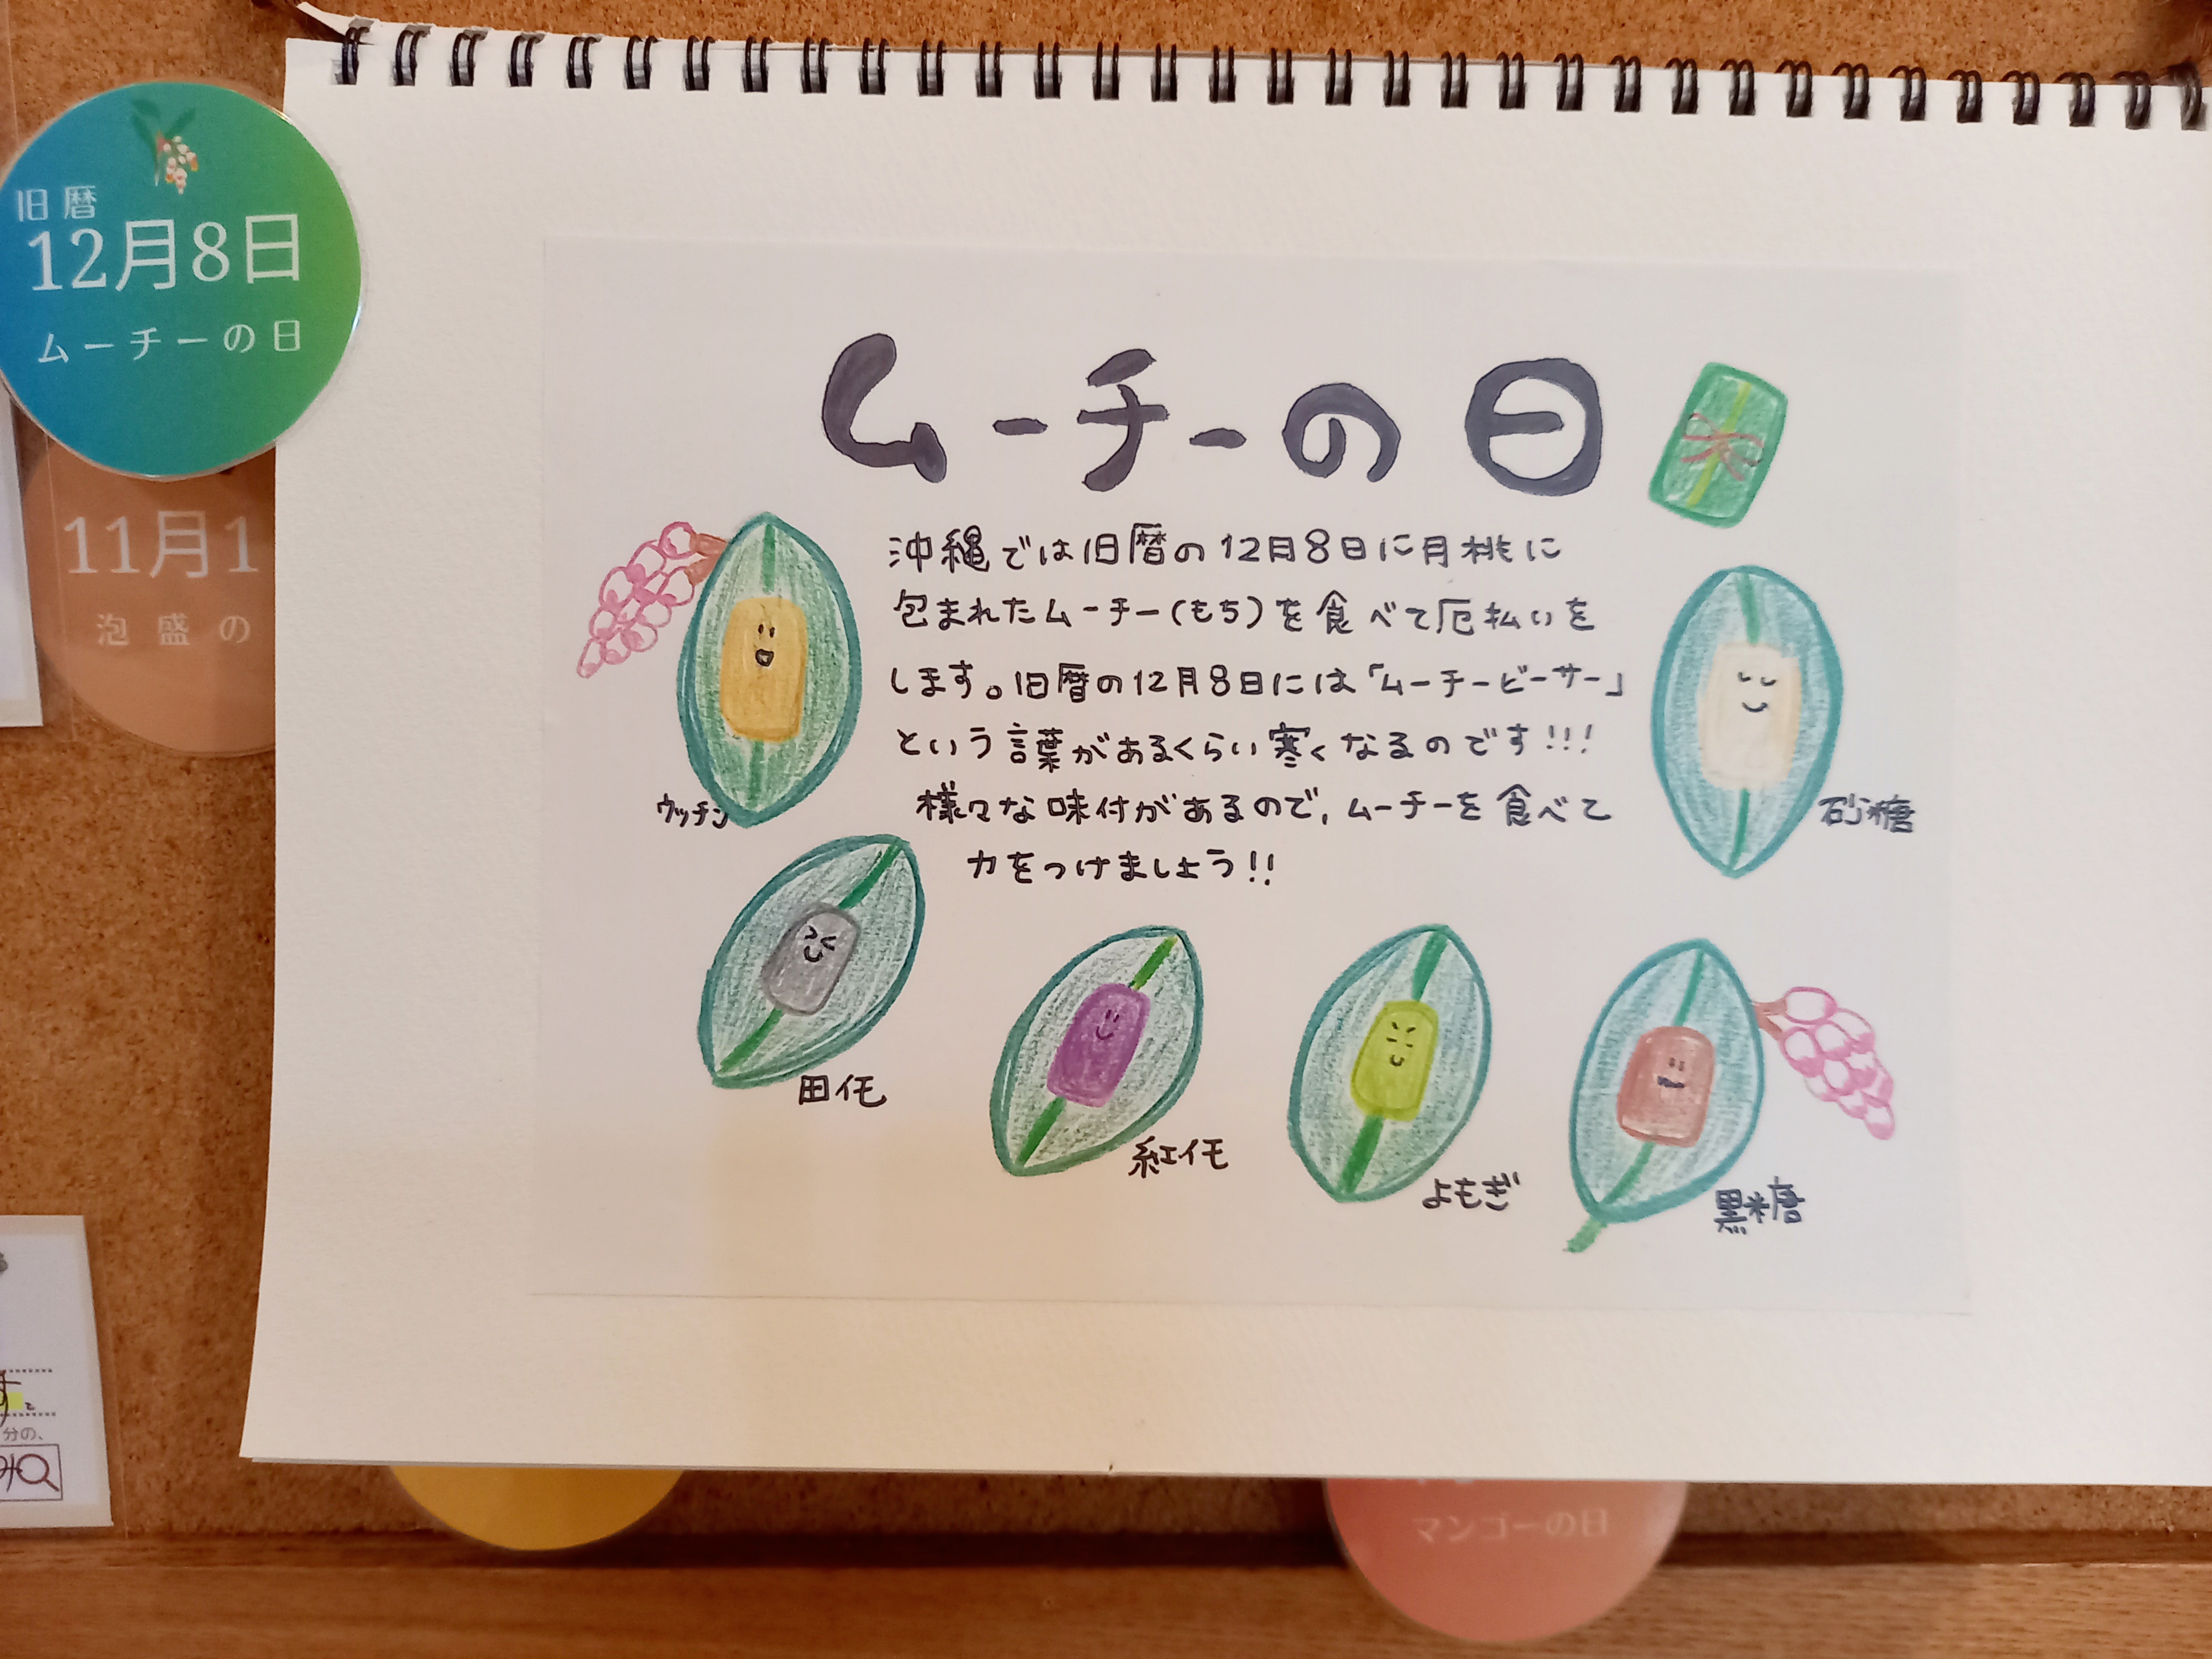 旧暦
12月8日
ムーチーの日
11月1
泡盛の
ムーチーの日
沖縄では旧暦の12月8日に月桃に
包まれたムーチー(もち)を食べて厄払いを
します。旧暦の12月8日には「ムーチービーサー」
という言葉があるくらい寒くなるのです!!!
様々な味付があるので、ムーチーを食べて
力をつけましょう!!
ウッチン
砂糖
田イモ
紅イモ
よもぎ
黒糖
分の、
マンゴーの日